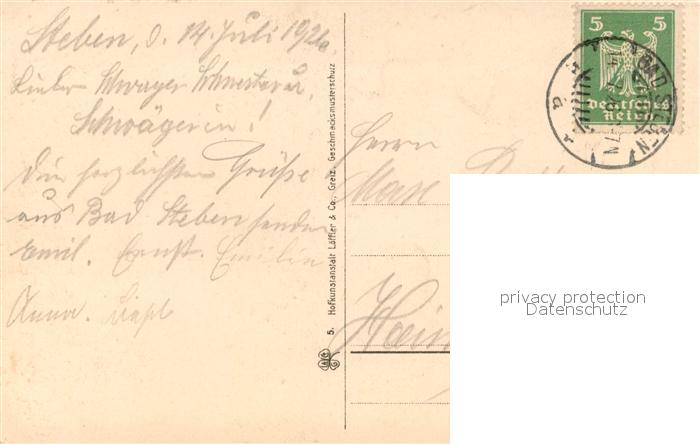 Steben, d. 14. Juli 1926
Lieber Schwager Schwester u.
Schwägerin!
Die herzlichsten Grüße
aus Bad Steben senden
Emil. Ernst. Emilie
Anna.
5. Hofkunstanstalt Löffler & Co., Greiz. Geschmacksmusterschutz
Herrn
Max
5 5
Deutsches
Reich
BAD STEBEN
privacy protection
Datenschutz